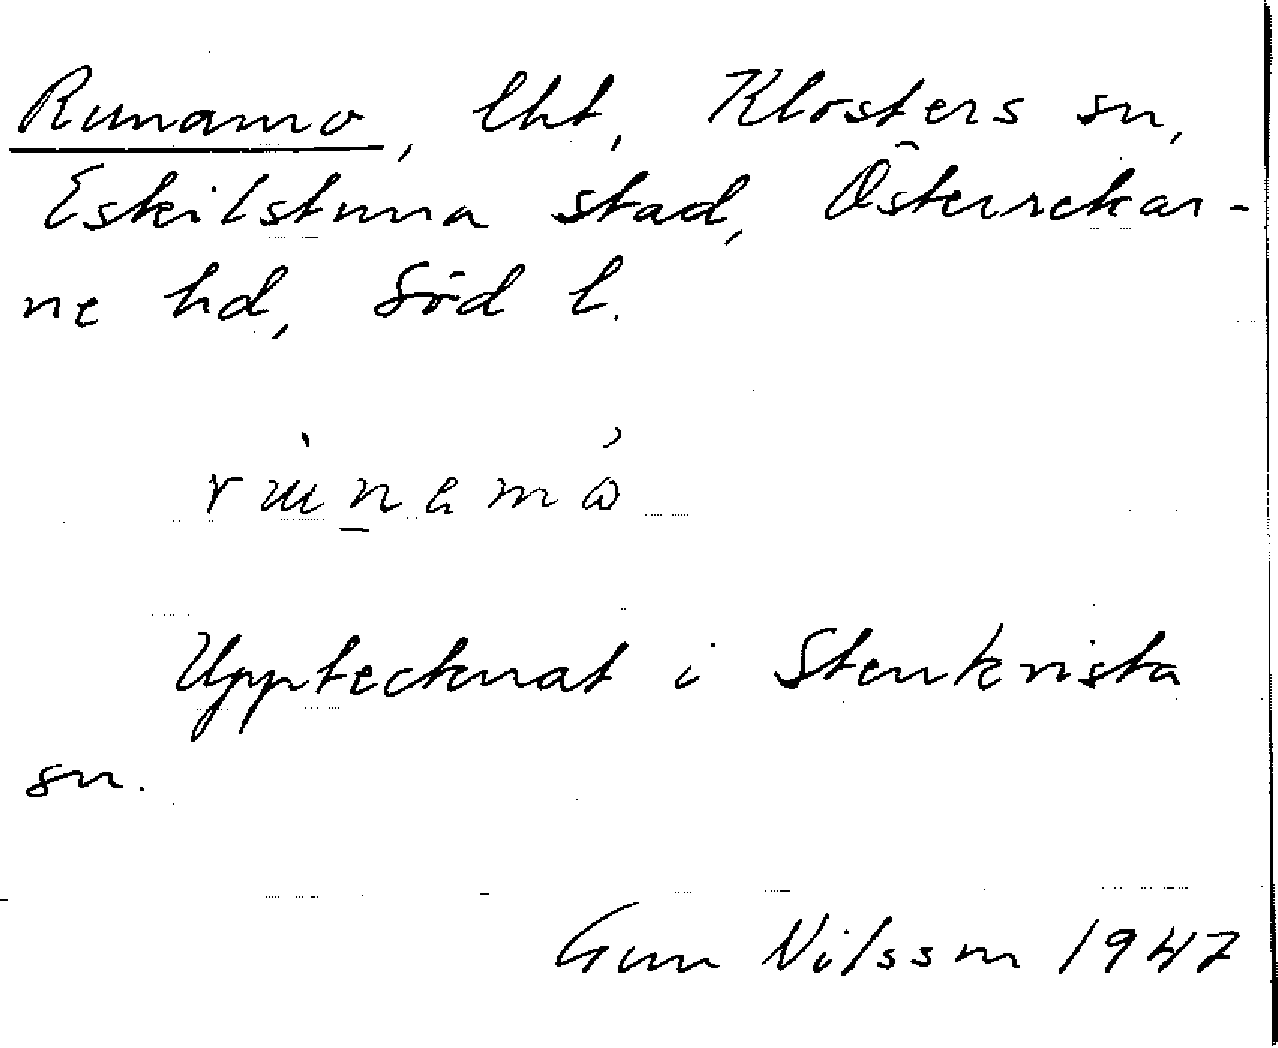 Runamo, lht, Klosters sn,
Eskilstuna stad, Österrekar-
ne hd, Söd l.
Upptecknat i Stenkvista
sn.
Gun Nilsson 1947